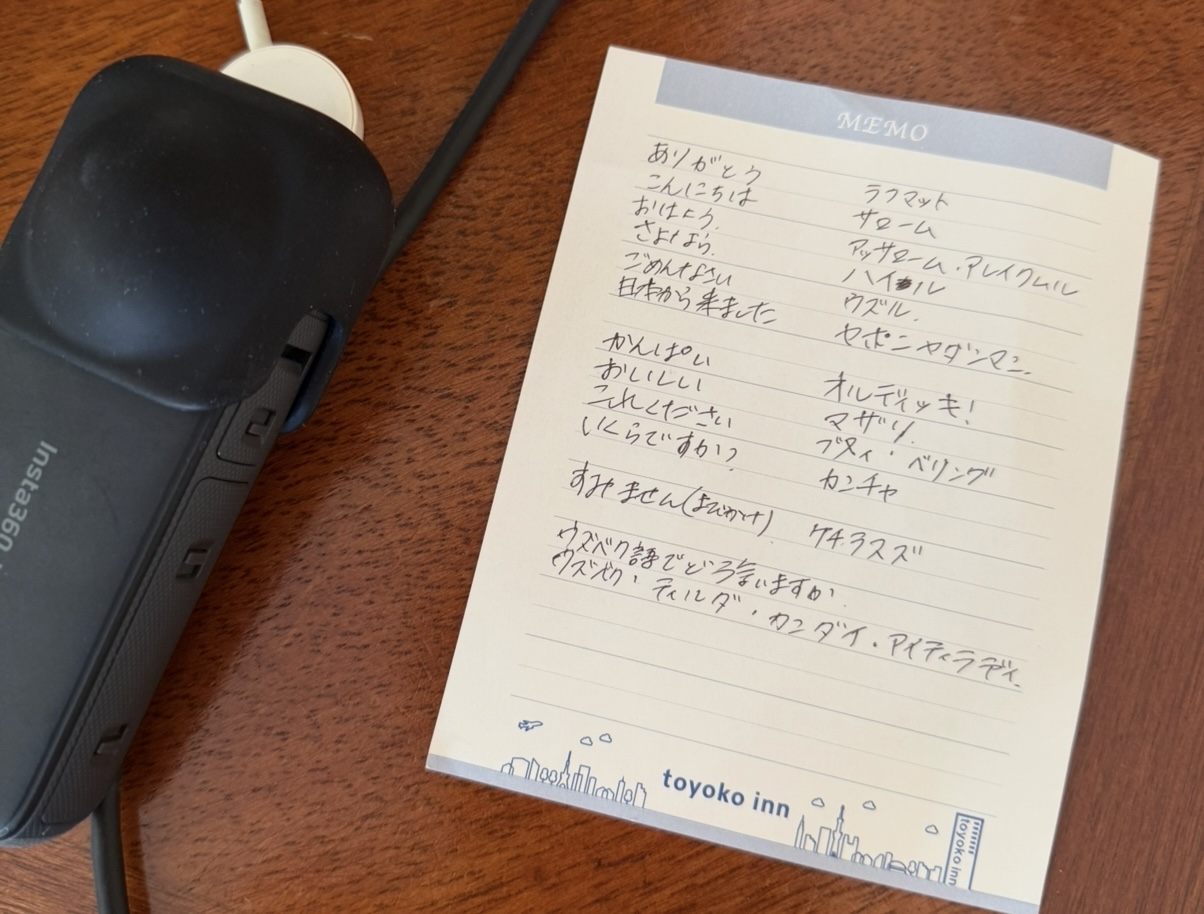 Insta360
MEMO
ありがとう ラフマット
こんにちは サローム
おはよう. アッサローム・アレイクムル
さよなら. ハイール
ごめんなさい ウズル.
日本から来ました ヤポンヤダンマン.
かんぱい オルディッキ!
おいしい マザリ.
これください ブヌィ・ベリング
いくらですか? カンチャ
すみません(よびかけ) ケチラスズ
ウズベク語でどう言いますか.
ウズベク・ティルダ・カンダイ・アイティラディ.
toyoko inn
toyoko inn